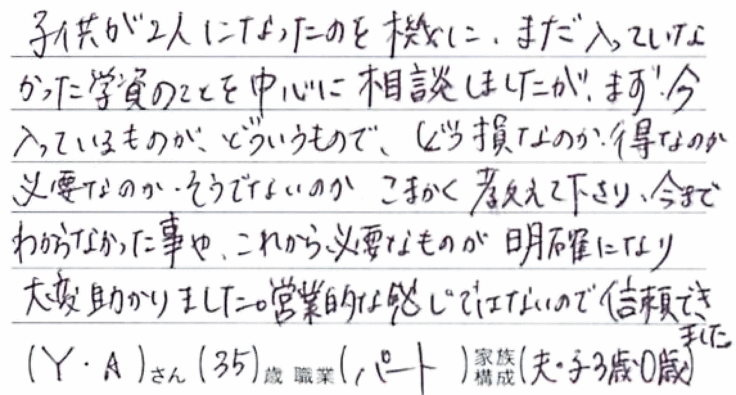 子供が2人になったのを機に、まだ入っていな
かった学資のことを中心に相談しましたが、まず今
入っているものが、どういうもので、どう損なのか・得なのか
必要なのか・そうでないのか こまかく教えて下さり、今まで
わからなかった事や、これから必要なものが明確になり
大変助かりました。営業的な感じではないので信頼でき
ました
(Y・A)さん(35)歳 職業(パート)家族構成(夫・子3歳・0歳)